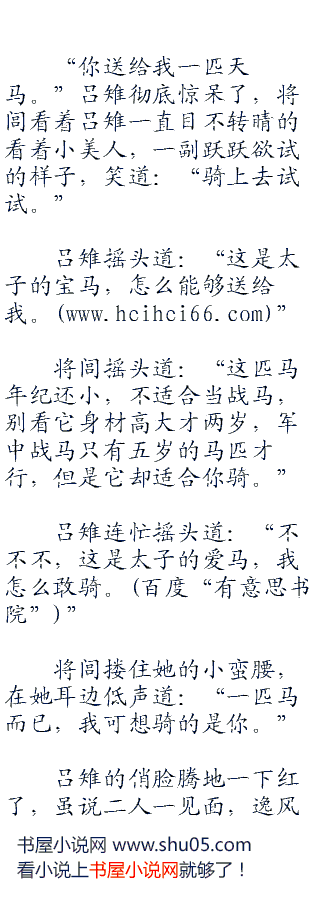 “你送给我一匹天
马。”吕雉彻底惊呆了，将
闾看着吕雉一直目不转睛的
看着小美人，一副跃跃欲试
的样子，笑道：“骑上去试
试。”
吕雉摇头道：“这是太
子的宝马，怎么能够送给
我。(www.hcihci66.com)”
将闾摇头道：“这匹马
年纪还小，不适合当战马，
别看它身材高大才两岁，军
中战马只有五岁的马匹才
行，但是它却适合你骑。”
吕雉连忙摇头道：“不
不不，这是太子的爱马，我
怎么敢骑。(百度“有意思书
院”)”
将闾搂住她的小蛮腰，
在她耳边低声道：“一匹马
而已，我可想骑的是你。”
吕雉的俏脸腾地一下红
了，虽说二人一见面，逸风
书屋小说网 www.shu05.com
看小说上书屋小说网就够了！